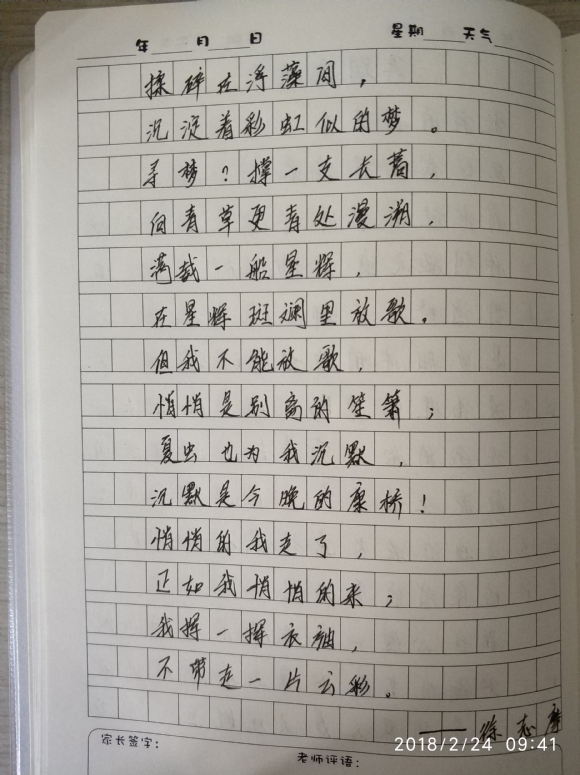 年 月 日 星期 天气
揉碎在浮藻间，
沉淀着彩虹似的梦。
寻梦？撑一支长蒿，
向青草更青处漫溯，
满载一船星辉，
在星辉斑斓里放歌。
但我不能放歌，
悄悄是别离的笙箫；
夏虫也为我沉默，
沉默是今晚的康桥！
悄悄的我走了，
正如我悄悄的来；
我挥一挥衣袖，
不带走一片云彩。
——徐志摩
家长签字：
老师评语：
2018/2/24 09:41